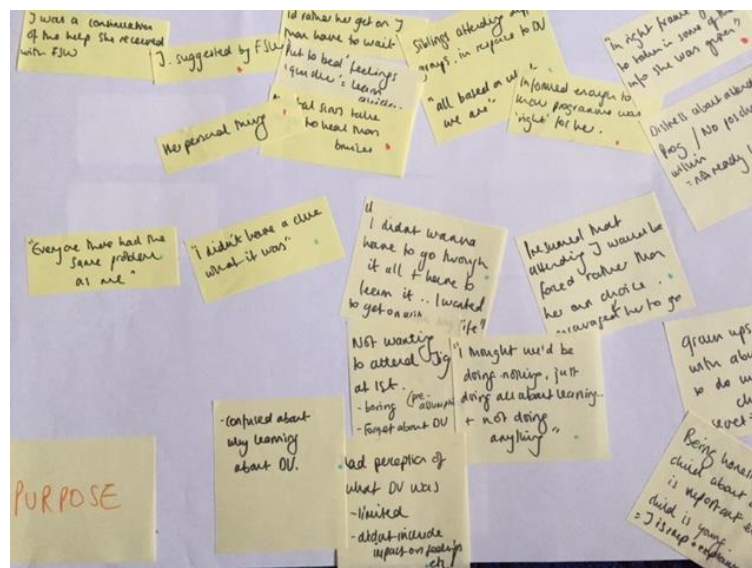 J was a continuation
of the help she received
with FSW
J. suggested by FSW
I'd rather her get on J
than have to wait
'Put to bed' feelings
'quicker' = learn
quicker..
scars take
to heal than
bruises
Her personal thing
Siblings attending
groups. in respect to DV
"all based on w
we are"
Informed enough to
know programme was
'right' for her.
"In right frame
to taken in some of
info she was given"
Distress about attend
Prog / No positiv
within
= not ready
"Everyone there had the
same problem
as me"
"I didn't have a clue
what it was"
"
I didnt wanna
have to go through
it all + have to
learn it .. I wanted
to get on with
life"
Presumed that
attending J would be
forced rather than
her own choice.
encouraged her to go
Not wanting
to attend Jig
at 1st.
- boring (pre
- Forget about DV
"I thought we'd be
doing nothing, just
doing all about learning..
+ not doing
anything"
grown ups
with abu
to do w
ch
secret
- confused about
why learning
about DV.
had perception of
what DV was
- limited
- didnt include
impact on feelings
etc
Being hones
child about
is important
child is young.
PURPOSE